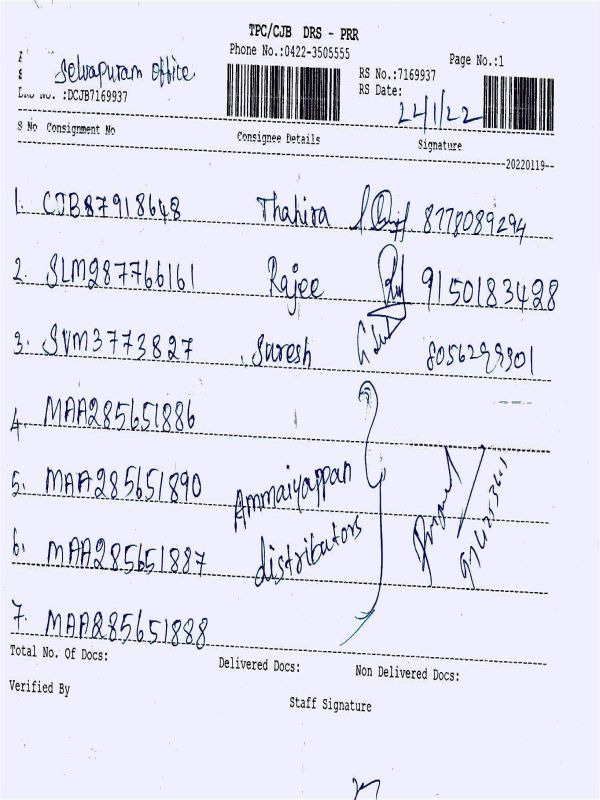 TPC/CJB DRS - PRR
Phone No.:0422-3505555
Page No.:1
Selvapuram Office
RS No.:7169937
RS Date:
24/1/22
No. :DCJB7169937
S No Consignment No Consignee Details Signature
20220119
1. CJB87918648 Thahira 8778089294
2. SLM287766161 Rajee 9150183428
3. SVM3773827 Suresh 8056299301
4. MAA285651886
5. MAA285651890 Ammaiyappan
6. MAA285651887 distributors
7. MAA285651888
Total No. Of Docs: Delivered Docs: Non Delivered Docs:
Verified By Staff Signature